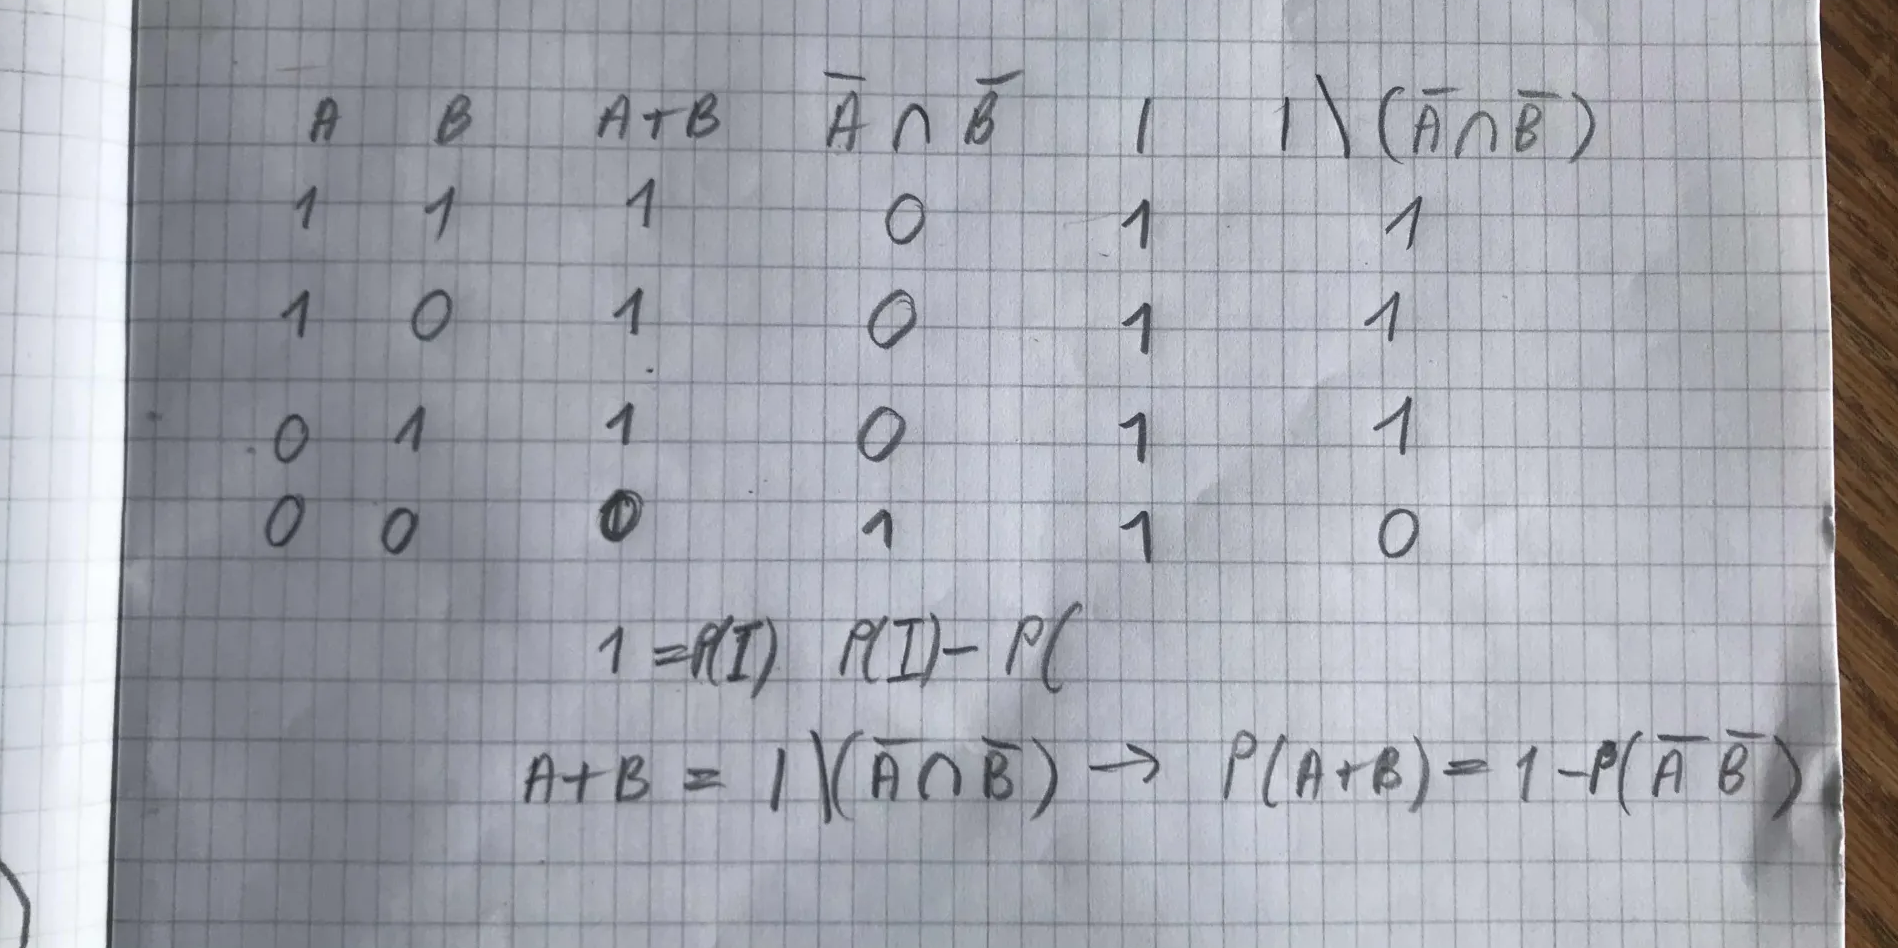 A B A+B A̅ ∩ B̅ I I \ (A̅ ∩ B̅)
1 1 1 0 1 1
1 0 1 0 1 1
0 1 1 0 1 1
0 0 0 1 1 0
1 = P(I) P(I) - P(
A+B = I \ (A̅ ∩ B̅) → P(A+B) = 1 - P(A̅ B̅)